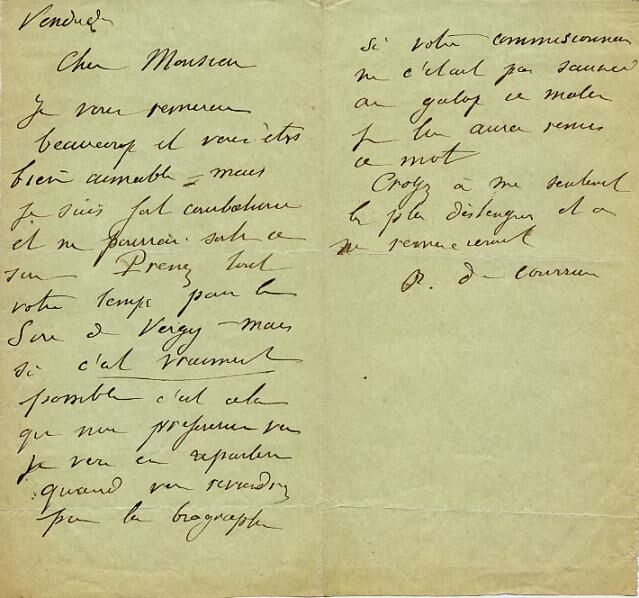 Vendredi
Cher Monsieur
Je vous remercie
beaucoup et vous êtes
bien aimable – mais
je suis fort
et ne pourrai ce
soir Prenez tout
votre temps pour la
de Vergy – mais
si c'est vraiment
possible c'est cela
que nous
je vous en reparlerai
quand vous reviendrez
pour la biographie
Si votre commissionnaire
ne s'était pas sauvé
au galop ce matin
je lui aurai remis
ce mot
Croyez à mes
les plus distingués et à
mes remerciements
de Courrière